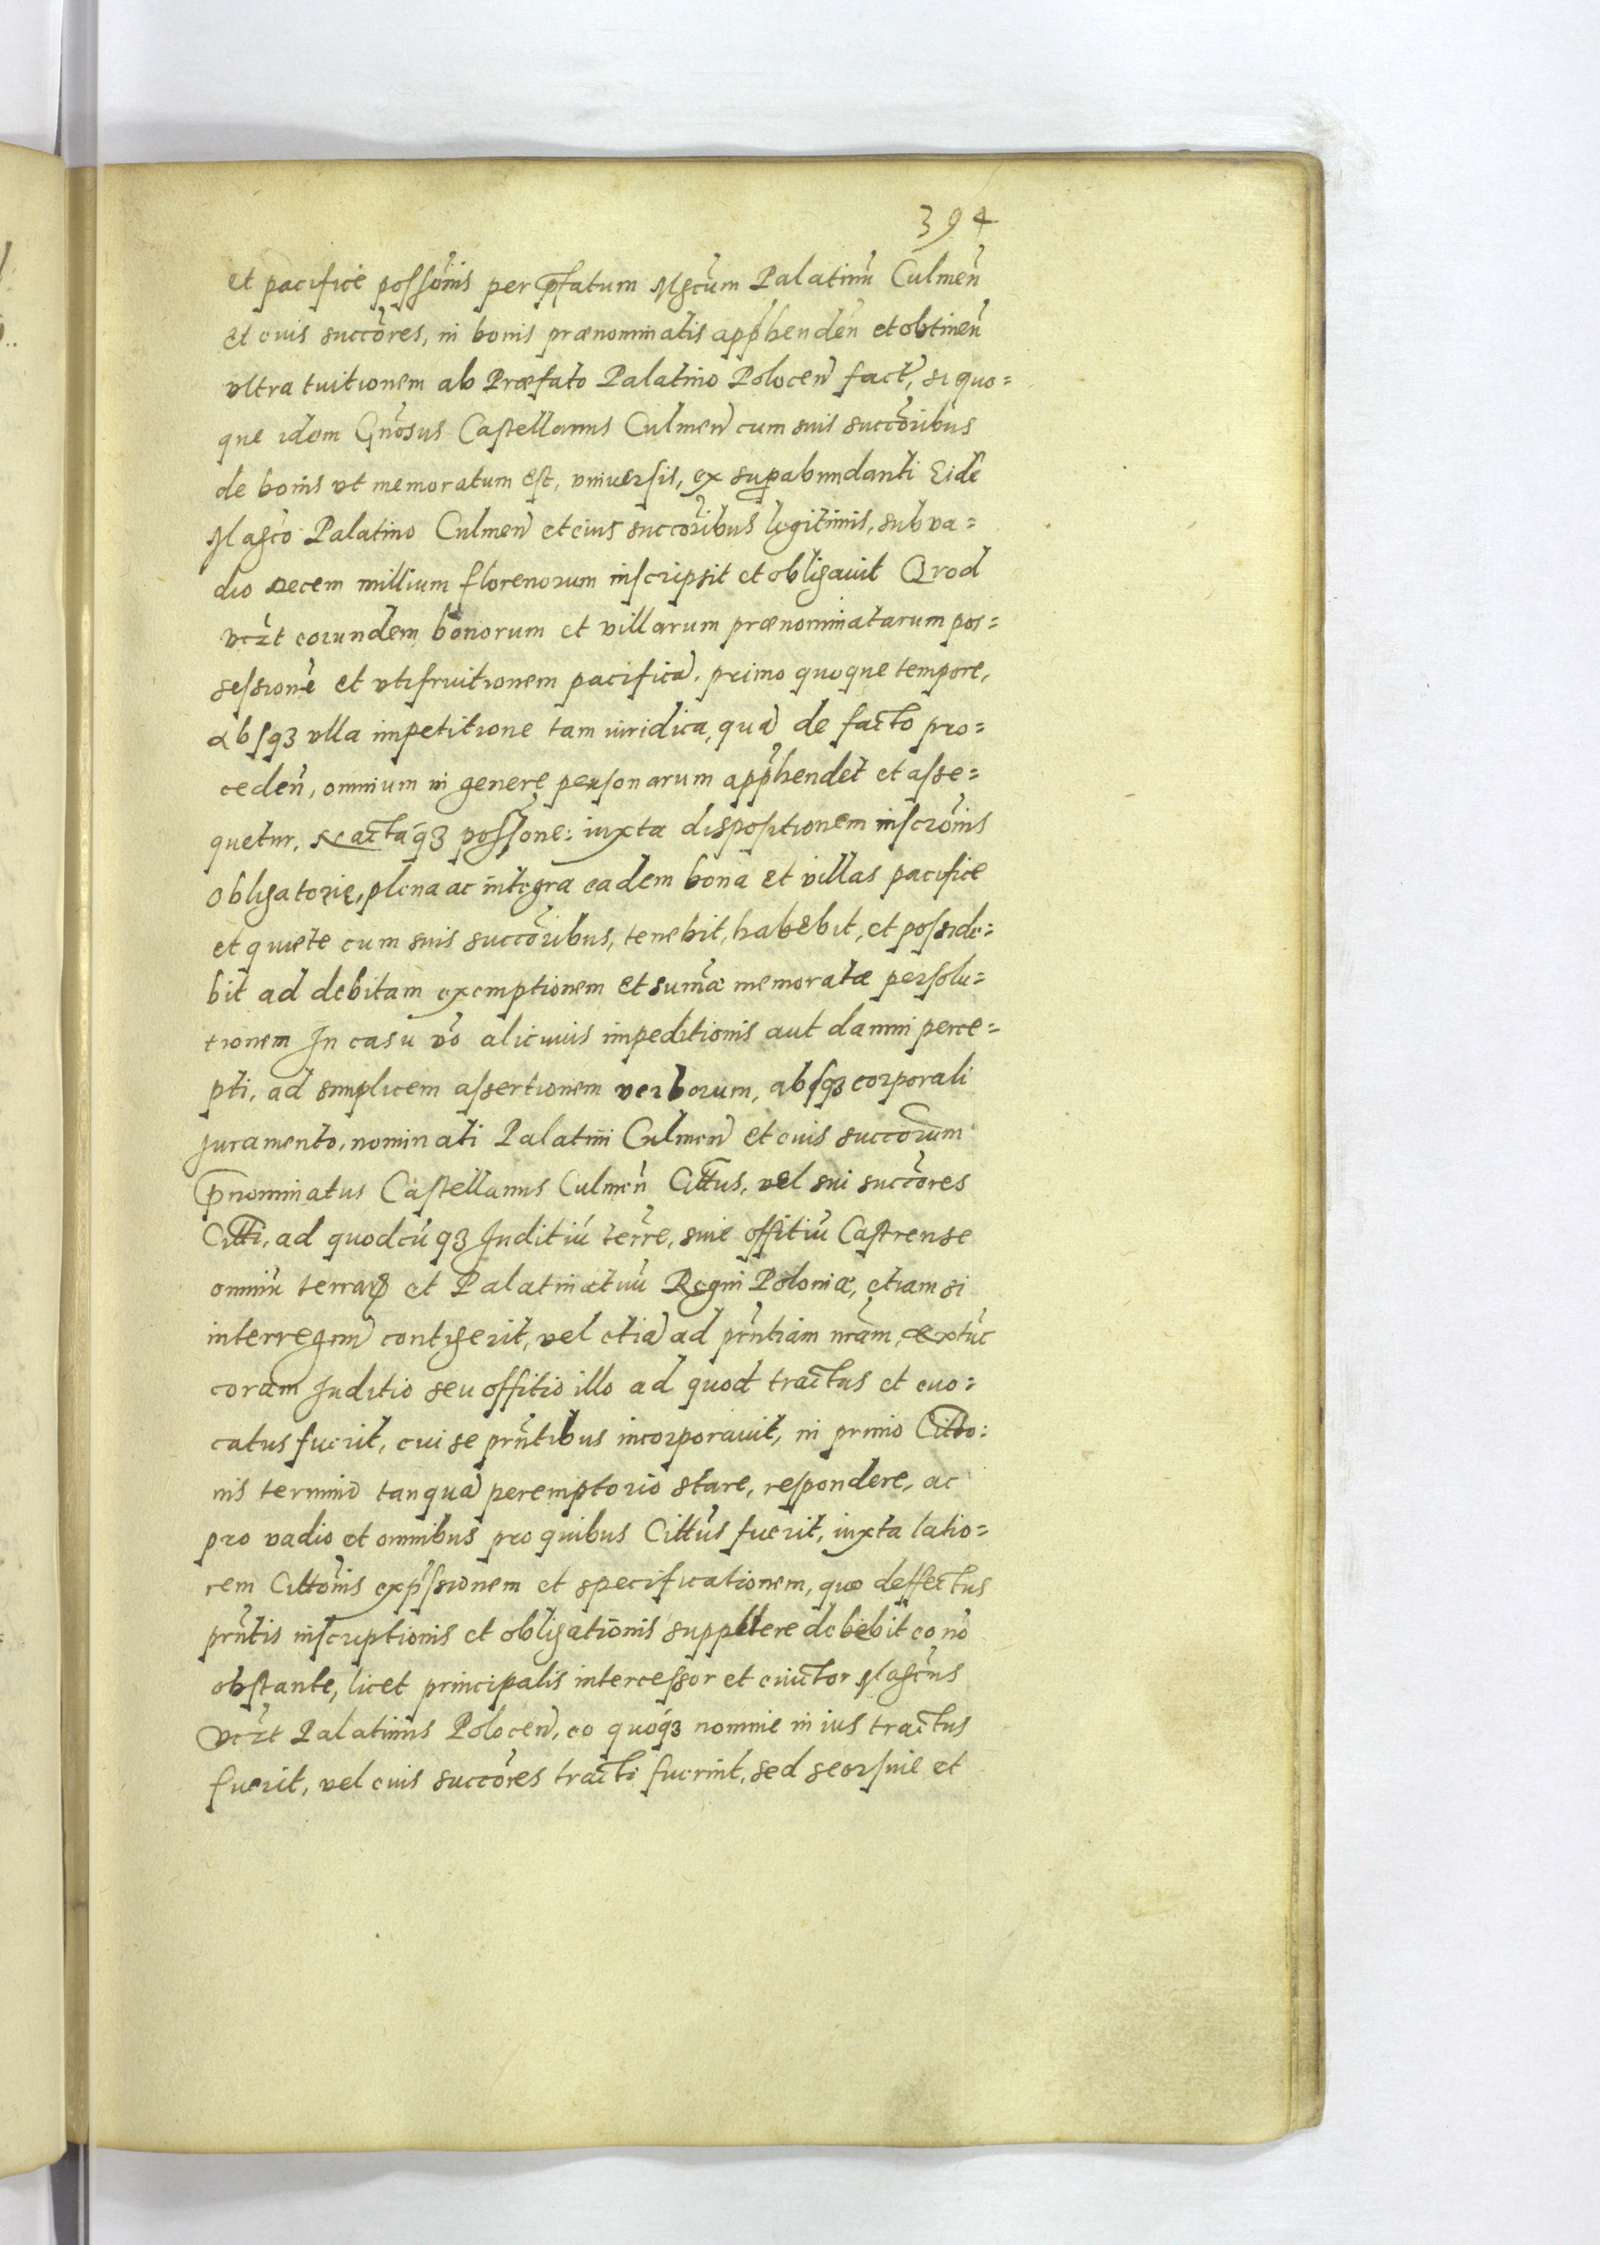 394
et pacificę possõnis per p̃fatum Mgcũm Palatinũ Culmeñ
et eius succõres, in bonis prænominatis app̃hendeñ et obtineñ
vltra tuitionem ab Præfato Palatino Poloceñ fact̃, si quo=
que idem Gñosus Castellanus Culmeñ cum suis succõribus
de bonis vt memoratum est, vniuersis, ex supabundanti Eidẽ
Magc̃o Palatino Culmeñ et eius succõribus legitimis, sub va=
dio decem millium florenorum inscripsit et obligauit Quod
vcz̃t eorundem bonorum et villarum prænominatarum pos=
sessionẽ et vtifruitionem pacificã, primo quoque tempore,
absqꝫ vlla impetitione tam iuridica, quã de facto pro=
cedeñ, omnium in genere personarum app̃hendet et asse=
quetur, nactaqꝫ possõne: iuxta dispositionem inscrõnis
obligatorię, plena ac integra eadem bona et villas pacifice
et quiete cum suis succõribus, tenebit, habebit, et posside=
bit ad debitam exemptionem et sum̃æ memoratæ persolu=
tionem In casu võ alicuius impeditionis aut damni perce=
pti, ad simplicem assertionem verborum, absqꝫ corporali
Juramento, nominati Palatini Culmeñ et eius succõrum
p̃nominatus Castellanus Culmeñ Citt̃us, vel sui succõres
Citt̃i, ad quodcũqꝫ Juditiũ terr̃e, siue offitiũ Castrense
omniũ terrarꝝ et Palatinatuũ Regni Poloniæ, etiam si
interregnũ contigerit, vel etiã ad prñtiam nr̃am, extũc
coram Juditio seu offitio illo ad quod tractus et euo=
catus fuerit, cui se prñtibus incorporauit, in primo Citt̃o=
nis termino tanquã peremptorio stare, respondere, ac
pro vadio et omnibus pro quibus Citt̃us fuerit, iuxta latio=
rem Citt̃onis exp̃ssionem et specificationem, quæ deffectus
prñtis inscriptionis et obligationis supplere debebit eo nõ
obstante, licet principalis intercessor et euictor Magcũs
vcz̃t Palatinus Poloceñ, eo quoqꝫ nomine in ius tractus
fuerit, vel eius succõres tracti fuerint, sed seorsiue et